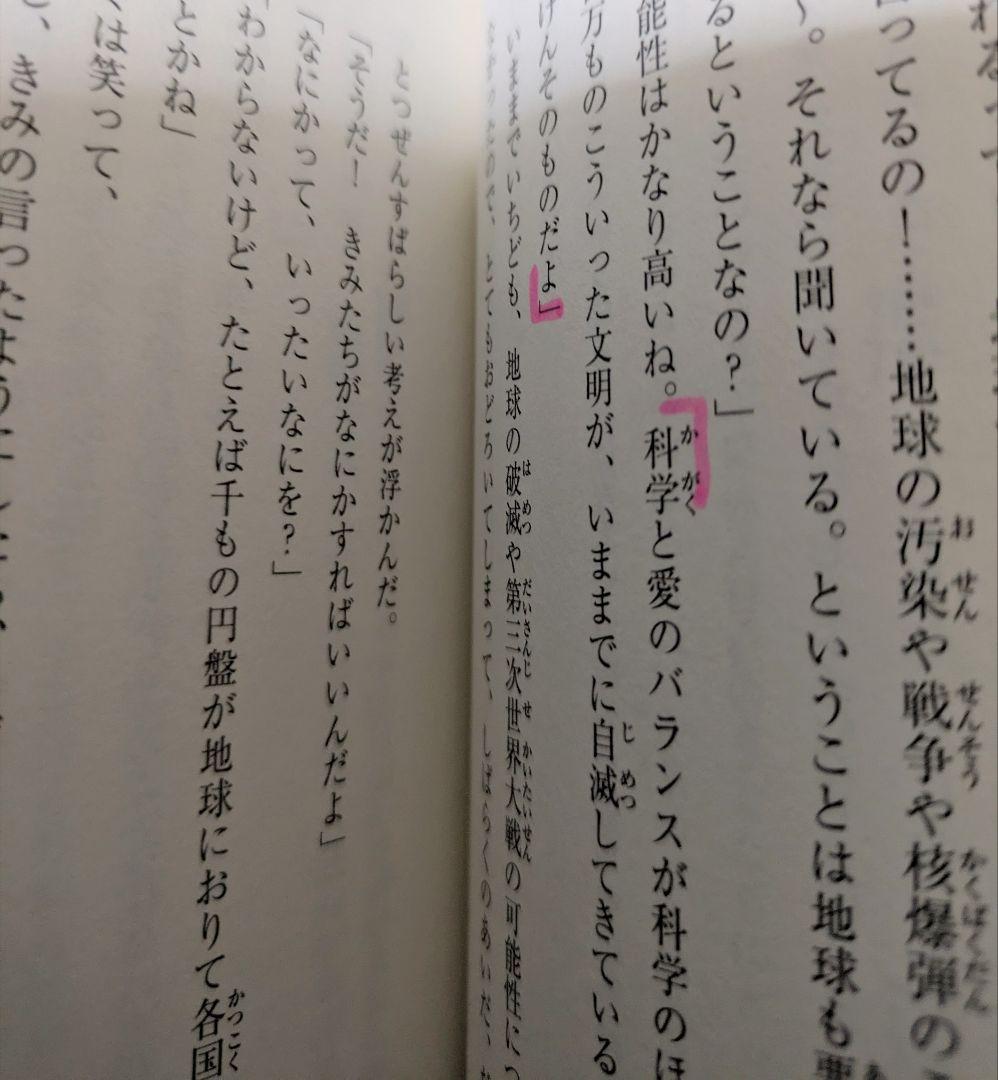 言ってるの！……地球の汚染や戦争や核爆弾の
〜。それなら聞いている。ということは地球も悪
るということなの？」
能性はかなり高いね。科学と愛のバランスが科学のほ
万ものこういった文明が、いままでに自滅してきている
けんそのものだよ」
いままでいちども、地球の破滅や第三次世界大戦の可能性につ
とてもおどろいてしまって、しばらくのあいだ、
とつぜんすばらしい考えが浮かんだ。
「そうだ！　きみたちがなにかすればいいんだよ」
「なにかって、いったいなにを？」
「わからないけど、たとえば千もの円盤が地球におりて各国
とかね」
くは笑って、
きみの言ったように